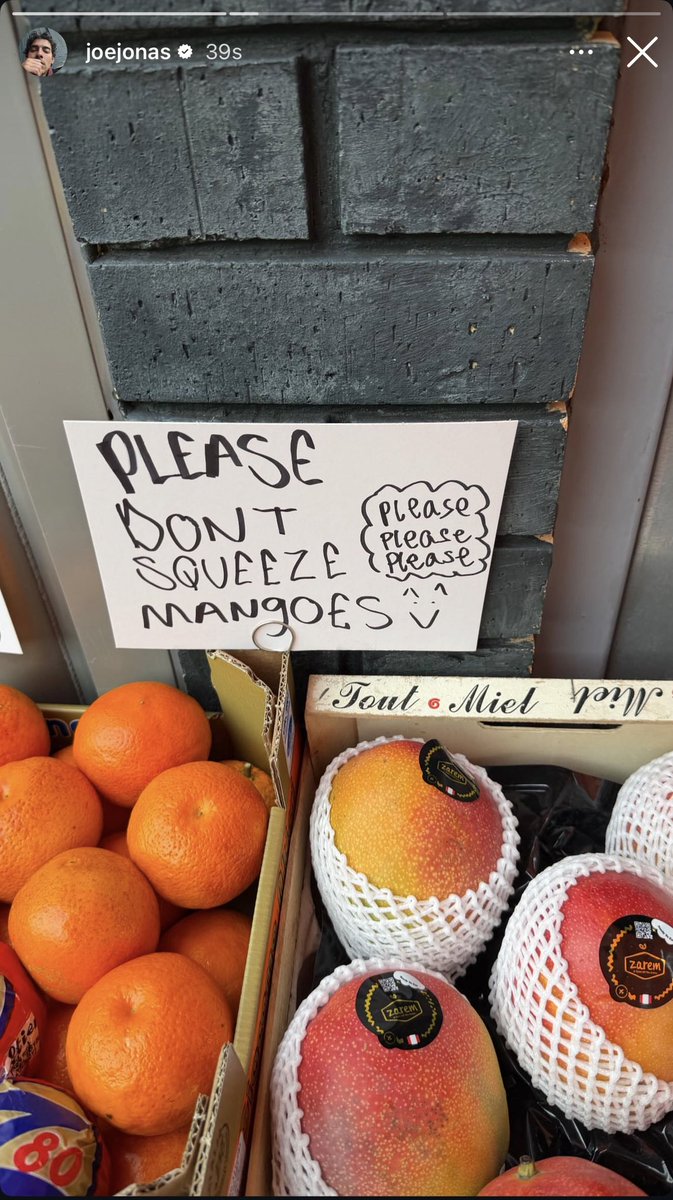 joejonas 39s
PLEASE
DON'T
SQUEEZE
MANGOES
please
please
please
Tout Miel Miel
zarem
zarem
zarem
80